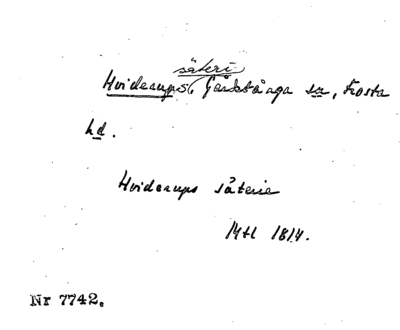 säteri
Hviderups, Gårdstånga sn, Frosta
hd.
Hviderups säterie
Mtl 1814.
Nr 7742.